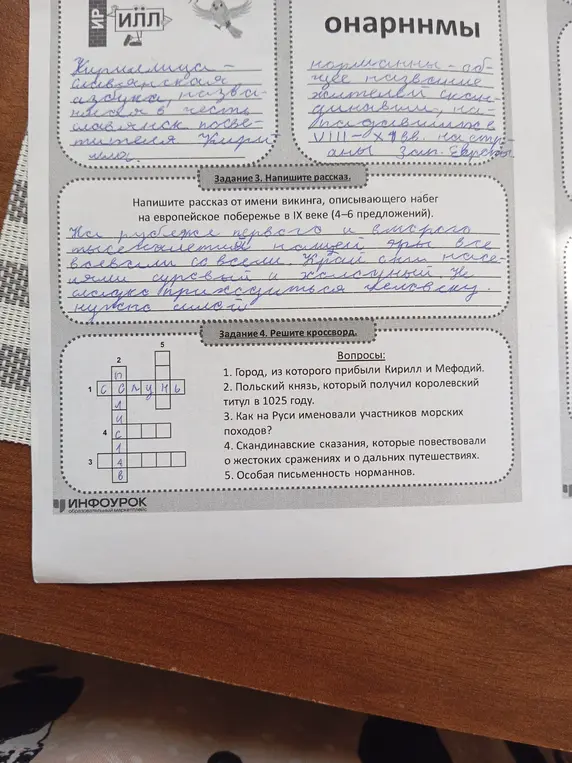 ИР
ИЛЛ
онарннмы
Кириллица –
славянская
азбука, назва-
ная в честь
славянск просве-
тителя Кири
лла.
норманны – об-
щее название
жителей скан-
динавии, на-
падавших в
VIII – XI вв. на стр-
аны Зап. Европы
Задание 3. Напишите рассказ.
Напишите рассказ от имени викинга, описывающего набег
на европейское побережье в IX веке (4–6 предложений).
На рубеже первого и второго
тысячелетия нашей эры все
воевали со всеми. Край они насе-
ляли суровый и холодный. Не
сладко приходиться человеку.
нужно силой
Задание 4. Решите кроссворд.
5
2
п
1 с о л у н ь
л
и
4 с
л
3 а
в
Вопросы:
1. Город, из которого прибыли Кирилл и Мефодий.
2. Польский князь, который получил королевский
титул в 1025 году.
3. Как на Руси именовали участников морских
походов?
4. Скандинавские сказания, которые повествовали
о жестоких сражениях и о дальних путешествиях.
5. Особая письменность норманнов.
ИНФОУРОК
ОБРАЗОВАТЕЛЬНЫЙ МАРКЕТПЛЕЙС